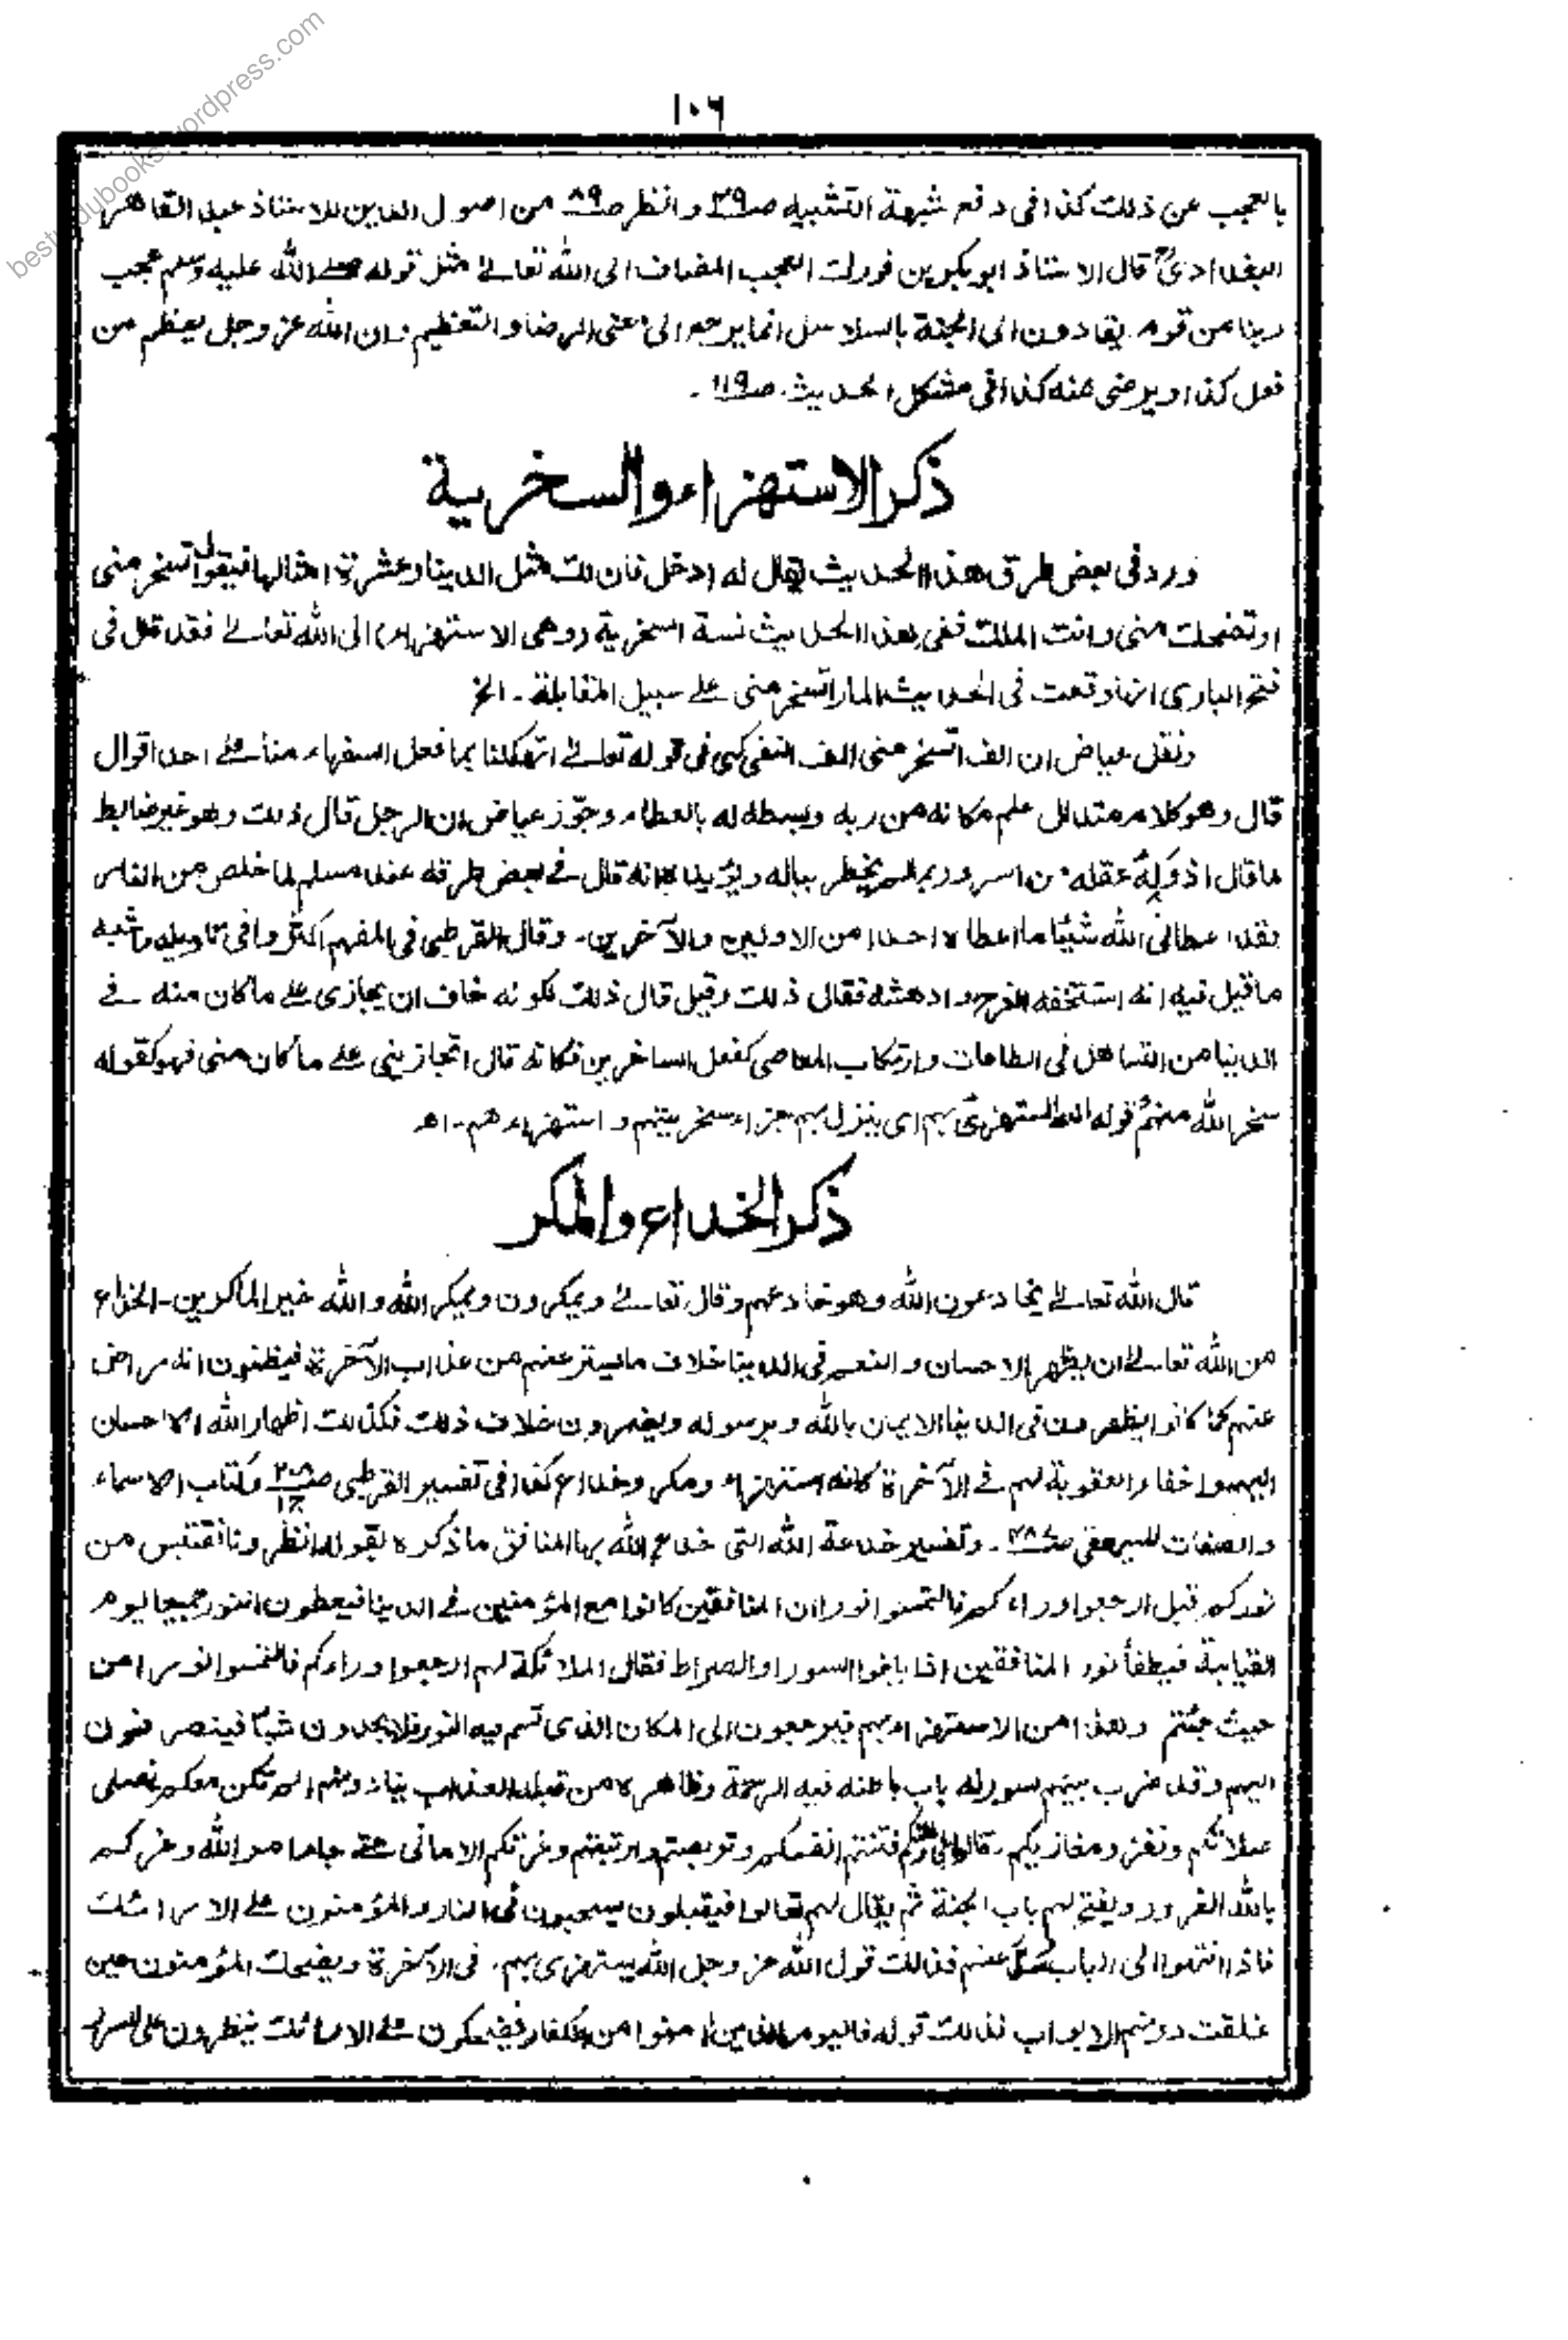 besturdubooks.wordpress.com
١٠٦
بالعجب عن ذلك كذا فى دفع شبهة التشبيه صـ٢٩ وانظر صـ٨٩ من اصول الدين للاستاذ عبد القاهر
البغدادىؒ قال الاستاذ ابو بكر بن فورك العجب المضاف الى الله تعالےٰ مثل قوله صلے الله عليه وسلم عجب
ربنا من قوم يقادون الى الجنة بالسلاسل انما يرجع الى معنى الرضا والتعظيم وان الله عز وجل يعظم من
فعل كذا ويرضى عنه كذا فى مشكل الحديث صـ١١٩ ـ
ذكر الاستهزاء والسخرية
ورد فى بعض طرق هذا الحديث يقال له ادخل فان لك مثل الدنيا وعشرة امثالها فيقول اتسخر منى
او تضحك منى وانت الملك ففى هذا الحديث نسبة السخرية (وهى الاستهزاء) الى الله تعالےٰ فقد قال فى
فتح البارى انها وقعت فى الحديث المار اتسخر منى علے سبيل المقابلة ـ الخ
ونقل عياض ان الف اتسخر منى الف النفى كهى فى قوله تعالےٰ اتهلكنا بما فعل السفهاء منا علے احد اقوال
قال وهو كلام متدلل علم مكانه من ربه وبسطه له بالعطاء وجوّز عياض ان الرجل قال ذلك وهو غير ضابط
ما قال اذ وله عقله من السرور بما لم يخطر بباله ويؤيده انه قال فے بعض طرقه عند مسلم لما خلص من النار
لقد اعطانى الله شيئا ما اعطاه احدا من الاولين والآخرين ـ وقال القرطبى فى المفهم اكثروا فى تاويله واشبه
ما قيل فيه انه استخفه الفرح وادهشه فقال ذلك وقيل قال ذلك لكونه خاف ان يجازى علے ما كان منه فے
الدنيا من التساهل فى الطاعات وارتكاب المعاصى كفعل الساخرين فكانه قال اتجازينى علے ما كان منى فهو كقوله
سخر الله منهم وقوله الله يستهزئ بهم اى ينزل بهم جزاء سخريتهم واستهزاءهم ـ اه
ذكر الخداع والمكر
قال الله تعالےٰ يخادعون الله وهو خادعهم وقال تعالےٰ ويمكرون ويمكر الله والله خير الماكرين ـ الخداع
من الله تعالےٰ ان يظهر الاحسان والنعم فى الدنيا خلاف ما يستر عنهم من عذاب الآخرة فيظنون انه راض
عنهم كما كانوا يظهرون فى الدنيا الايمان بالله وبرسوله ويضمرون خلاف ذلك فكذلك اظهار الله الاحسان
اليهم واخفاء العقوبة لهم فے الآخرة كانه استهزاء ومكر وخداع كذا فى تفسير القرطبى وكتاب الاسماء
والصفات للبيهقى ـ وتفسير خدعة الله التى خدع الله بها المنافق ما ذكره بقوله انظرونا نقتبس من
نوركم قيل ارجعوا وراءكم فالتمسوا نورا ان المنافقين كانوا مع المؤمنين فے الدنيا فيعطون النور جميعا يوم
القيامة فيطفأ نور المنافقين اذا بلغوا السور او الصراط فقال الملائكة لهم ارجعوا وراءكم فالتمسوا نورا من
حيث جئتم وهذا من الاستهزاء بهم فيرجعون الى المكان الذى قسم فيه النور فلا يجدون شيئا فينصرفون
اليهم وقد ضرب بينهم بسور له باب باطنه فيه الرحمة وظاهره من قبله العذاب ينادونهم الم نكن معكم نصلى
صلاتكم ونغزو مغازيكم ـ قالوا بلى ولكنكم فتنتم انفسكم وتربصتم وارتبتم وغرتكم الامانى حتے جاء امر الله وغركم
بالله الغرور ويفتح لهم باب الجنة ثم يقال لهم تعالوا فيقبلون يسبحون فى النار والمؤمنون علے الارائك
فاذا انتهوا الى الباب سُدّ عنهم فذلك قول الله عز وجل الله يستهزئ بهم ـ فى الآخرة ويضحك المؤمنون حين
غلقت دونهم الابواب فذلك قوله فاليوم الذين امنوا من الكفار يضحكون علے الارائك ينظرون على السرر